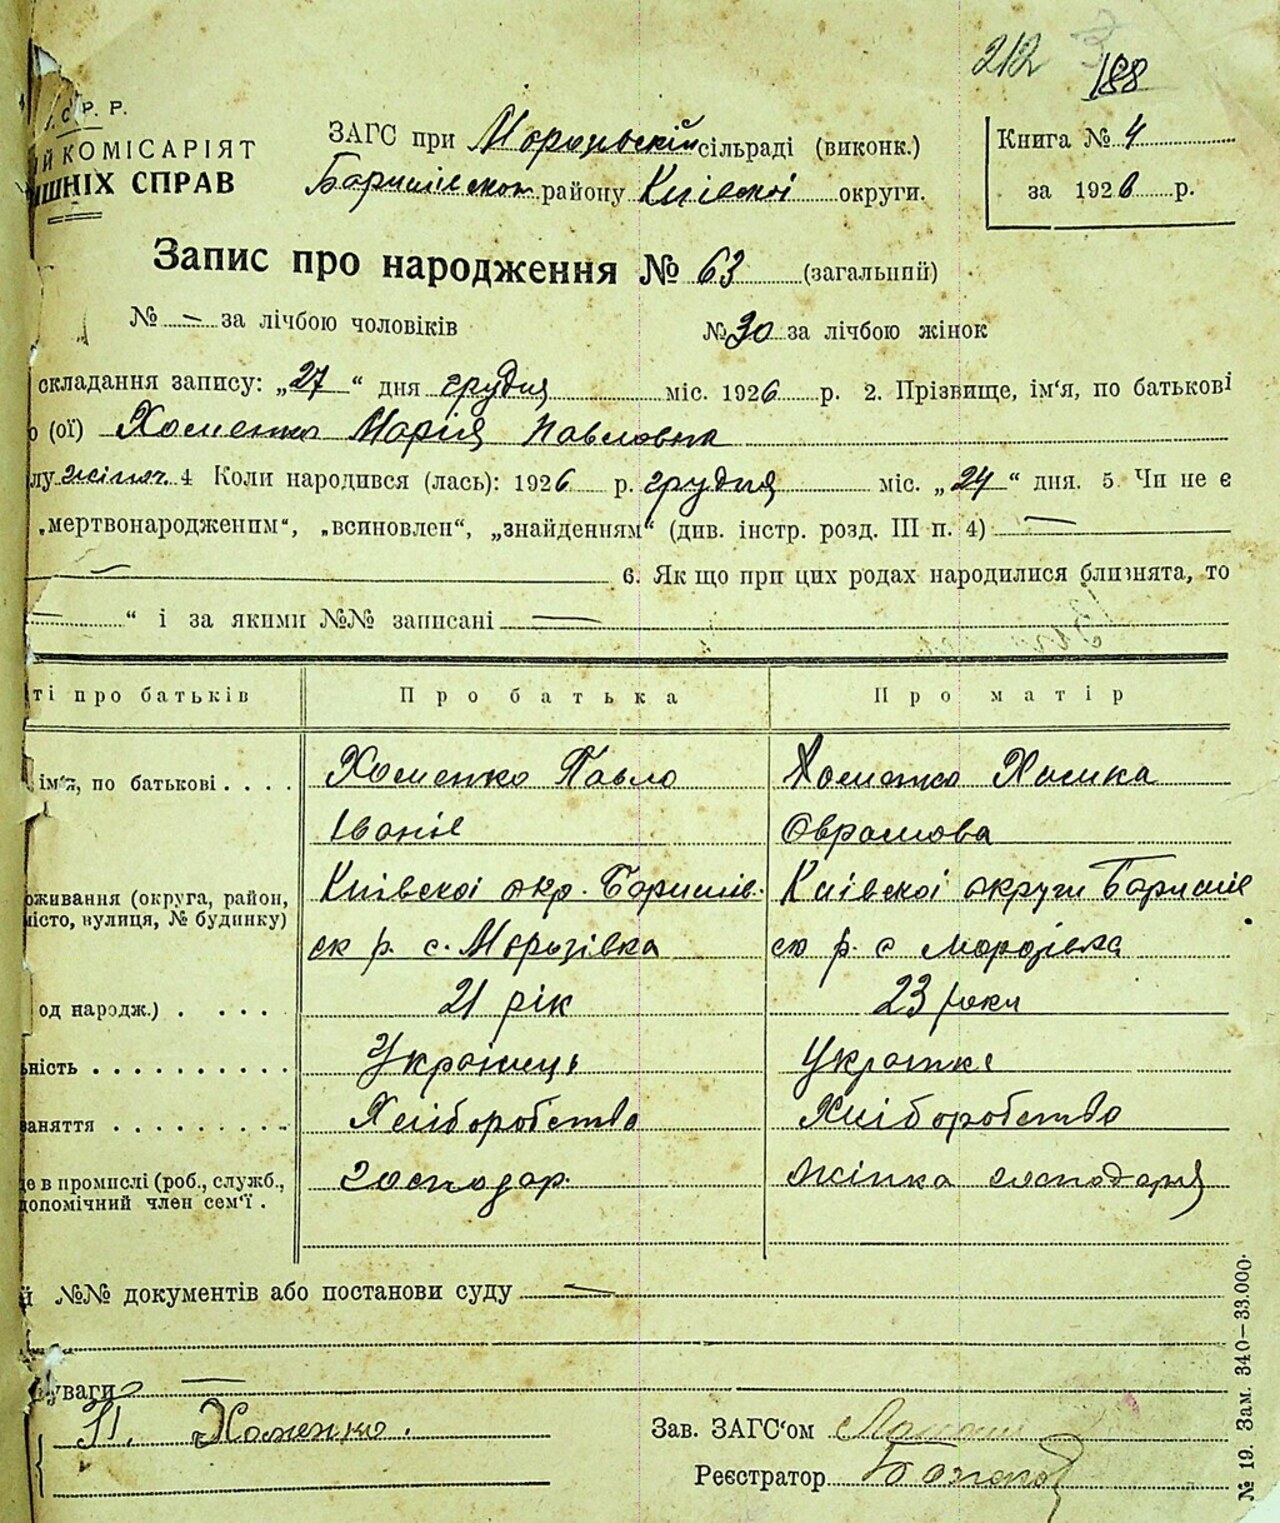 212 188
.С.Р.Р.
й КОМІСАРІЯТ
ШНІХ СПРАВ
ЗАГС при Морозівскій сільраді (виконк.)
Баришівском району Київскоі округи.
Книга № 4
за 1926 р.
Запис про народження № 63 (загальний)
№ — за лічбою чоловіків № 30 за лічбою жінок
складання запису: „27“ дня грудня міс. 1926 р. 2. Прізвище, ім‘я, по батькові
о (ої) Хоменко Марія Павловна
лу жіноч. 4 Коли народився (лась): 1926 р. грудня міс. „24“ дня. 5. Чи не є
„мертвонародженим“, „всиновлен“, „знайденням“ (див. інстр. розд. III п. 4) —
— 6. Як що при цих родах народилися близнята, то
— “ і за якими №№ записані —
ті про батьків Про батька Про матір
ім‘я, по батькові . . . . Хоменко Павло Хоменко Химка
Іванів Оврамова
оживання (округа, район, Київскоі окр. Баришів- Київскоі округи Баришів
місто, вулиця, № будинку)
ск р. с. Морозівка ск р. с Морозівка
од народж.) . . . . 21 рік 23 роки
ність . . . . . . . . . . Украінець Украінка
заняття . . . . . . . . . Хліборобство Хліборобство
де в промислі (роб., служб., господар. жінка господаря
допомічний член сем‘ї .
й №№ документів або постанови суду —
уваги —
П. Хоменко.
Зав. ЗАГС‘ом
Реєстратор
№ 19. Зам. 340—33.000.